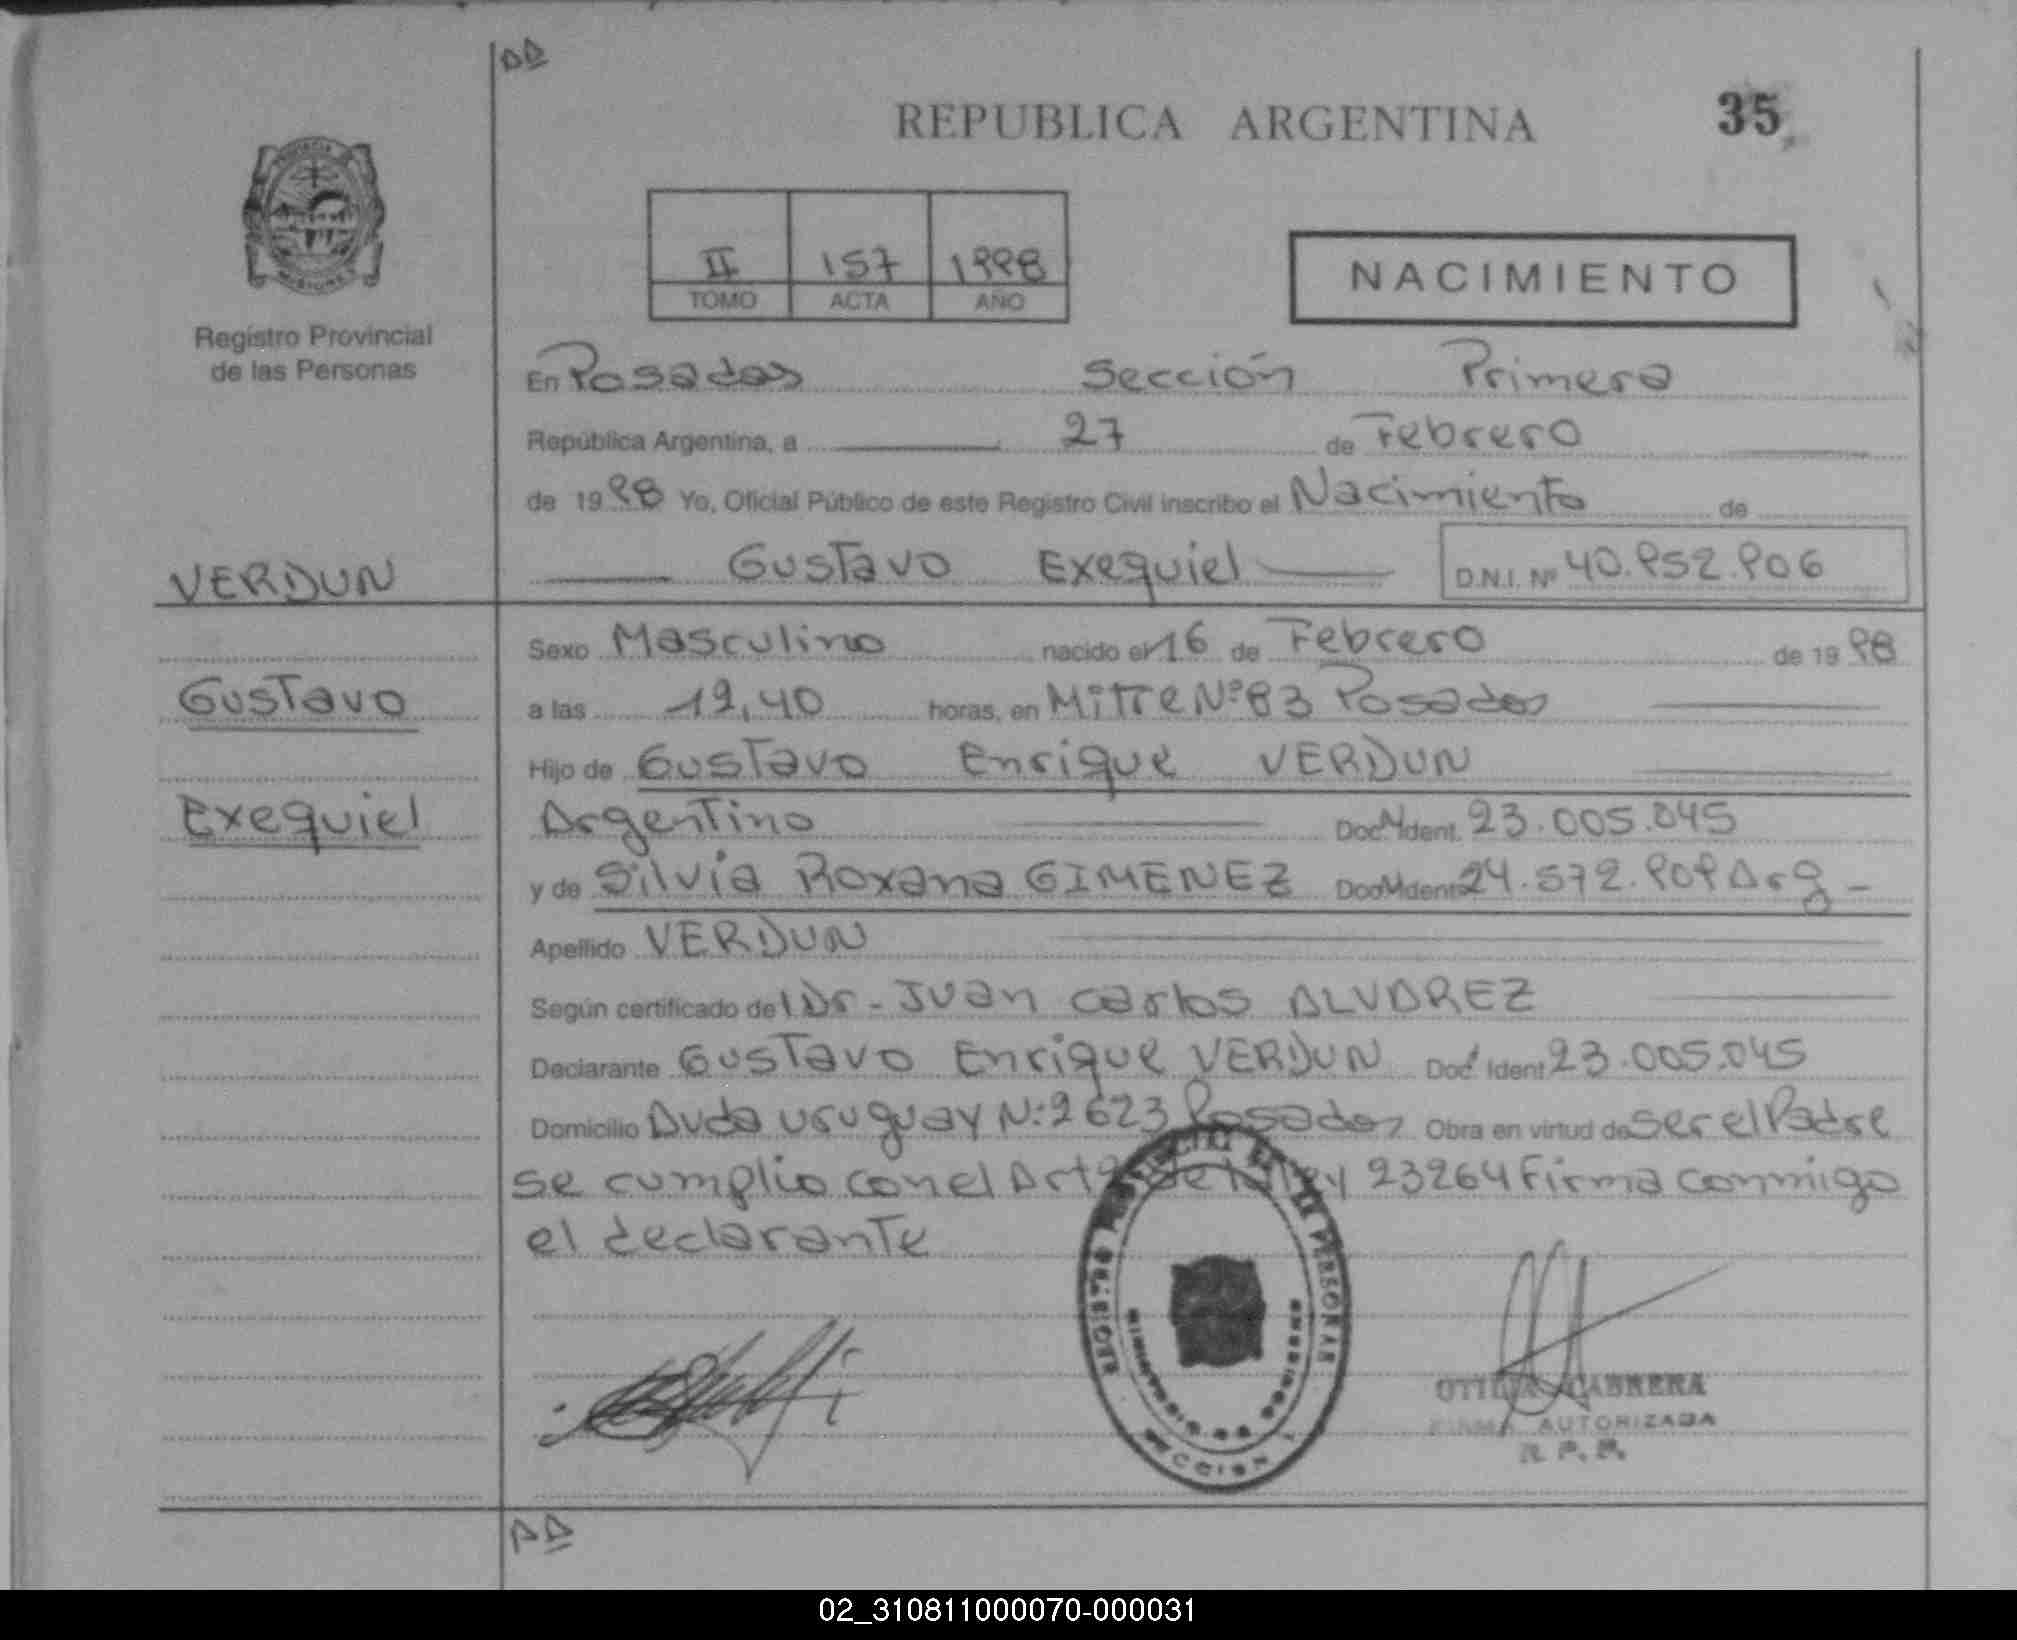 DD
REPUBLICA ARGENTINA
35
Registro Provincial
de las Personas
II 157 1998
TOMO ACTA AÑO
NACIMIENTO
En Posadas Sección Primera
República Argentina, a 27 de Febrero
de 1998 Yo, Oficial Público de este Registro Civil inscribo el Nacimiento de
VERDUN
Gustavo Exequiel D.N.I. Nº 40.952.906
Sexo Masculino nacido el 16 de Febrero de 1998
Gustavo
a las 19,40 horas, en Mitre Nº 83 Posadas
Hijo de Gustavo Enrique VERDUN
Exequiel
Argentino Doc. Ident. 23.005.045
y de Silvia Roxana GIMENEZ Doc. Ident. 24.572.909 Arg
Apellido VERDUN
Según certificado del Dr - Juan Carlos ALVAREZ
Declarante Gustavo Enrique VERDUN Doc. Ident 23.005.045
Domicilio Avda Uruguay Nº 2623 Posadas Obra en virtud de ser el Padre
se cumplio con el Art de la Ley 23264 Firma conmigo
el declarante
REGISTRO PROVINCIAL DE LAS PERSONAS
MINISTERIO DE GOBIERNO
SECCION 1
OTILIA CABRERA
FIRMA AUTORIZADA
R. P. P.
DD
02_310811000070-000031